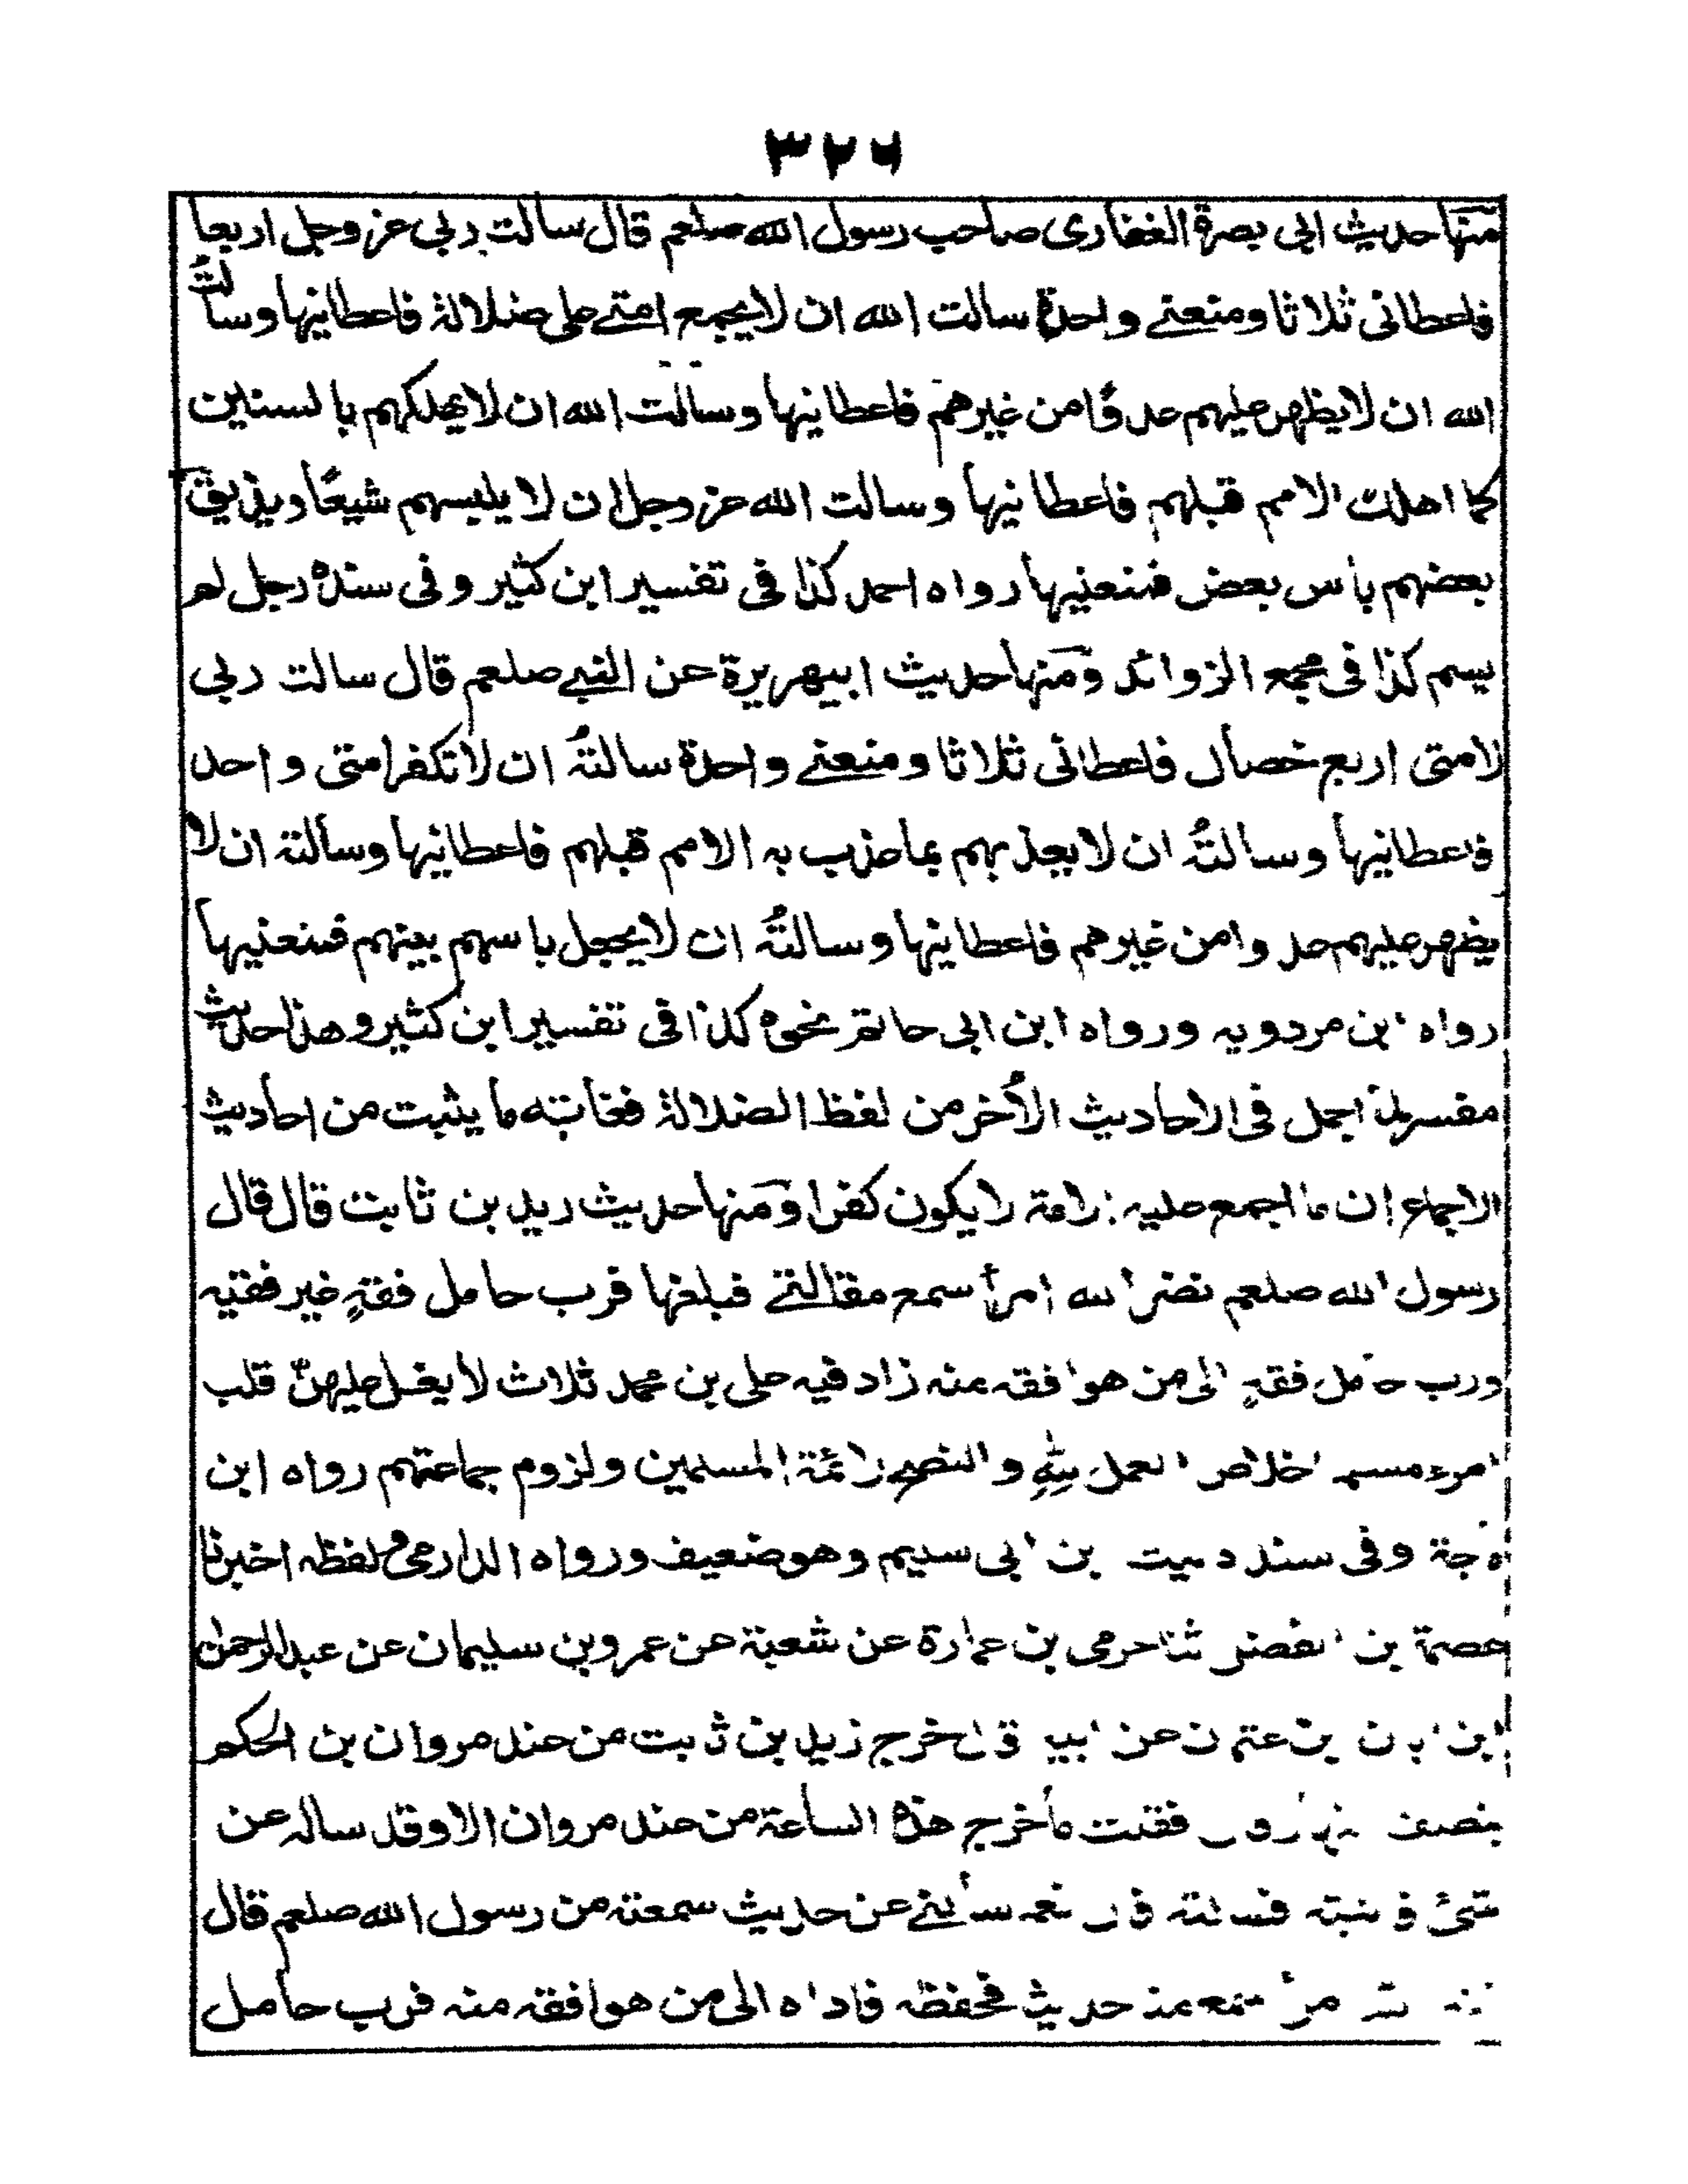 ٣٢٦
منها حديث ابى بصرة الغفارى صاحب رسول الله صلعم قال سالت ربى عز وجل اربعا
فاعطانى ثلاثا ومنعنے واحدة سالت الله ان لا يجمع امتے على ضلالة فاعطانيها وسالتُ
الله ان لا يظهر عليهم عدوًا من غيرهم فاعطانيها وسالت الله ان لا يهلكهم بالسنين
كما اهلك الامم قبلهم فاعطانيها وسالت الله عز وجل ان لا يلبسهم شيعًا ويذيق
بعضهم باس بعض فمنعنيها رواه احمد كذا فى تفسير ابن كثير وفى سنده رجل لم
يسم كذا فى مجمع الزوائد ومنها حديث ابيهريرة عن النبے صلعم قال سالت ربى
لامتى اربع خصال فاعطانى ثلاثا ومنعنے واحدة سالتهُ ان لا تكفر امتى واحد
فاعطانيها وسالتهُ ان لا يعذبهم بما عذب به الامم قبلهم فاعطانيها وسألته ان لا
يظهر عليهم عدوا من غيرهم فاعطانيها وسالتهُ ان لا يجعل باسهم بينهم فمنعنيها
رواه ابن مردويه ورواه ابن ابى حاتم نحوه كذا فى تفسير ابن كثير وهذا حديث
مفسر لما اجمل فى الاحاديث الأخر من لفظ الضلالة فغايته ما يثبت من احاديث
الاجماع ان ما اجمع عليه الامة لا يكون كفرا ومنها حديث زيد بن ثابت قال قال
رسول الله صلعم نضر الله امرأ سمع مقالتے فبلغها فرب حامل فقهٍ غير فقيه
ورب حامل فقهٍ الى من هو افقه منه زاد فيه على بن محمد ثلاث لا يغل عليهنّ قلب
امرء مسلم اخلاص العمل للهِ والنصح لائمة المسلمين ولزوم جماعتهم رواه ابن
ماجة وفى سنده ليث بن ابى سليم وهو ضعيف ورواه الدارمى ولفظه اخبرنا
عصمة بن الفضل ثنا حرمى بن عمارة عن شعبة عن عمرو بن سليمان عن عبد الرحمان
ابن ابان بن عثمان عن ابيه قال خرج زيد بن ثابت من عند مروان بن الحكم
بنصف النهار قال فقلت ما خرج هذه الساعة من عند مروان الا وقد ساله عن
شئ فاتيته فسالته قال نعم سألنے عن حديث سمعته من رسول الله صلعم قال
نضر الله امرأ سمع منا حديث فحفظه فاداه الى من هو افقه منه فرب حامل